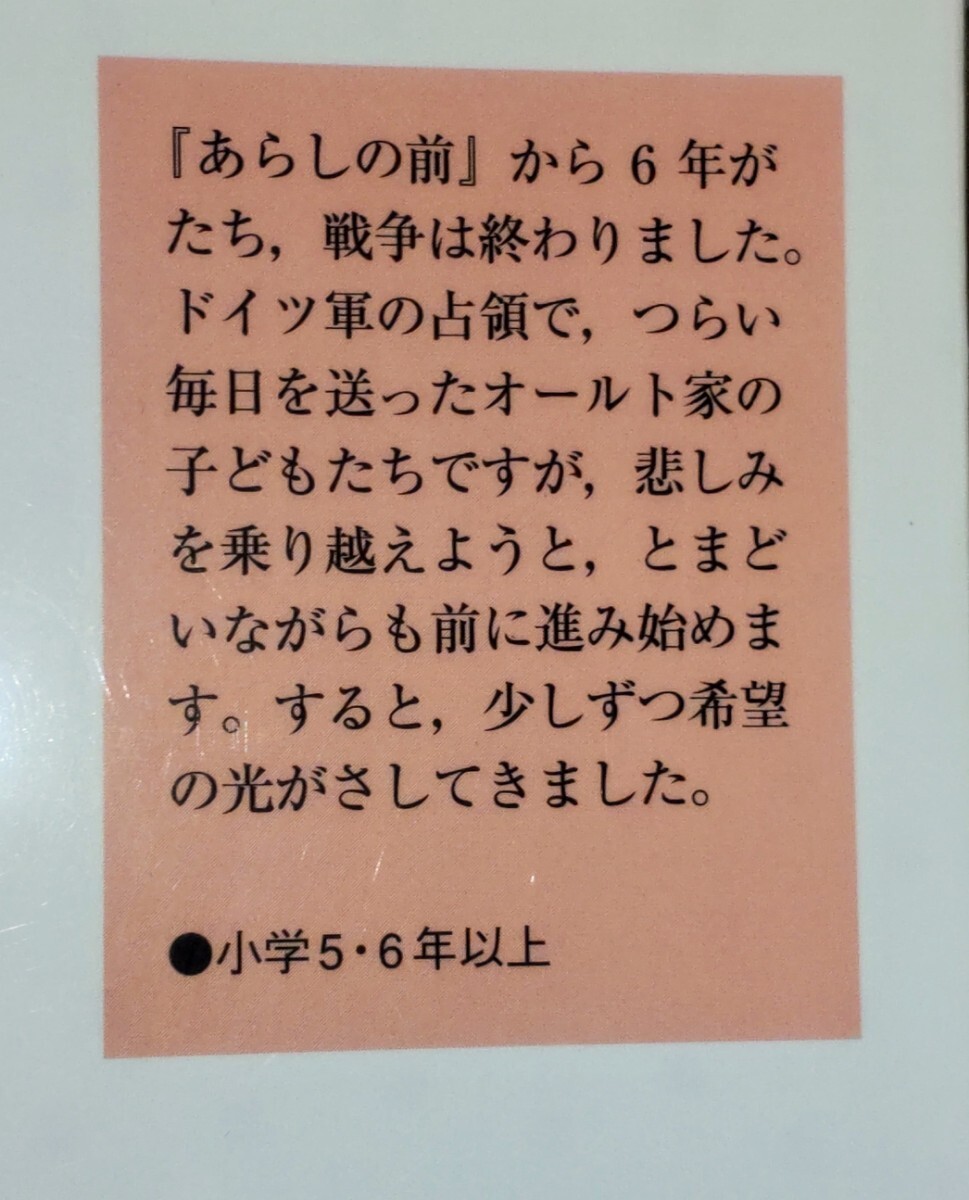 『あらしの前』から6年が
たち，戦争は終わりました。
ドイツ軍の占領で，つらい
毎日を送ったオールト家の
子どもたちですが，悲しみ
を乗り越えようと，とまど
いながらも前に進み始めま
す。すると，少しずつ希望
の光がさしてきました。
●小学5・6年以上